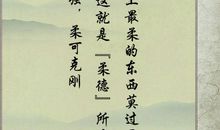 上最柔的东西莫过
这就是『柔德』所
强，柔可克刚